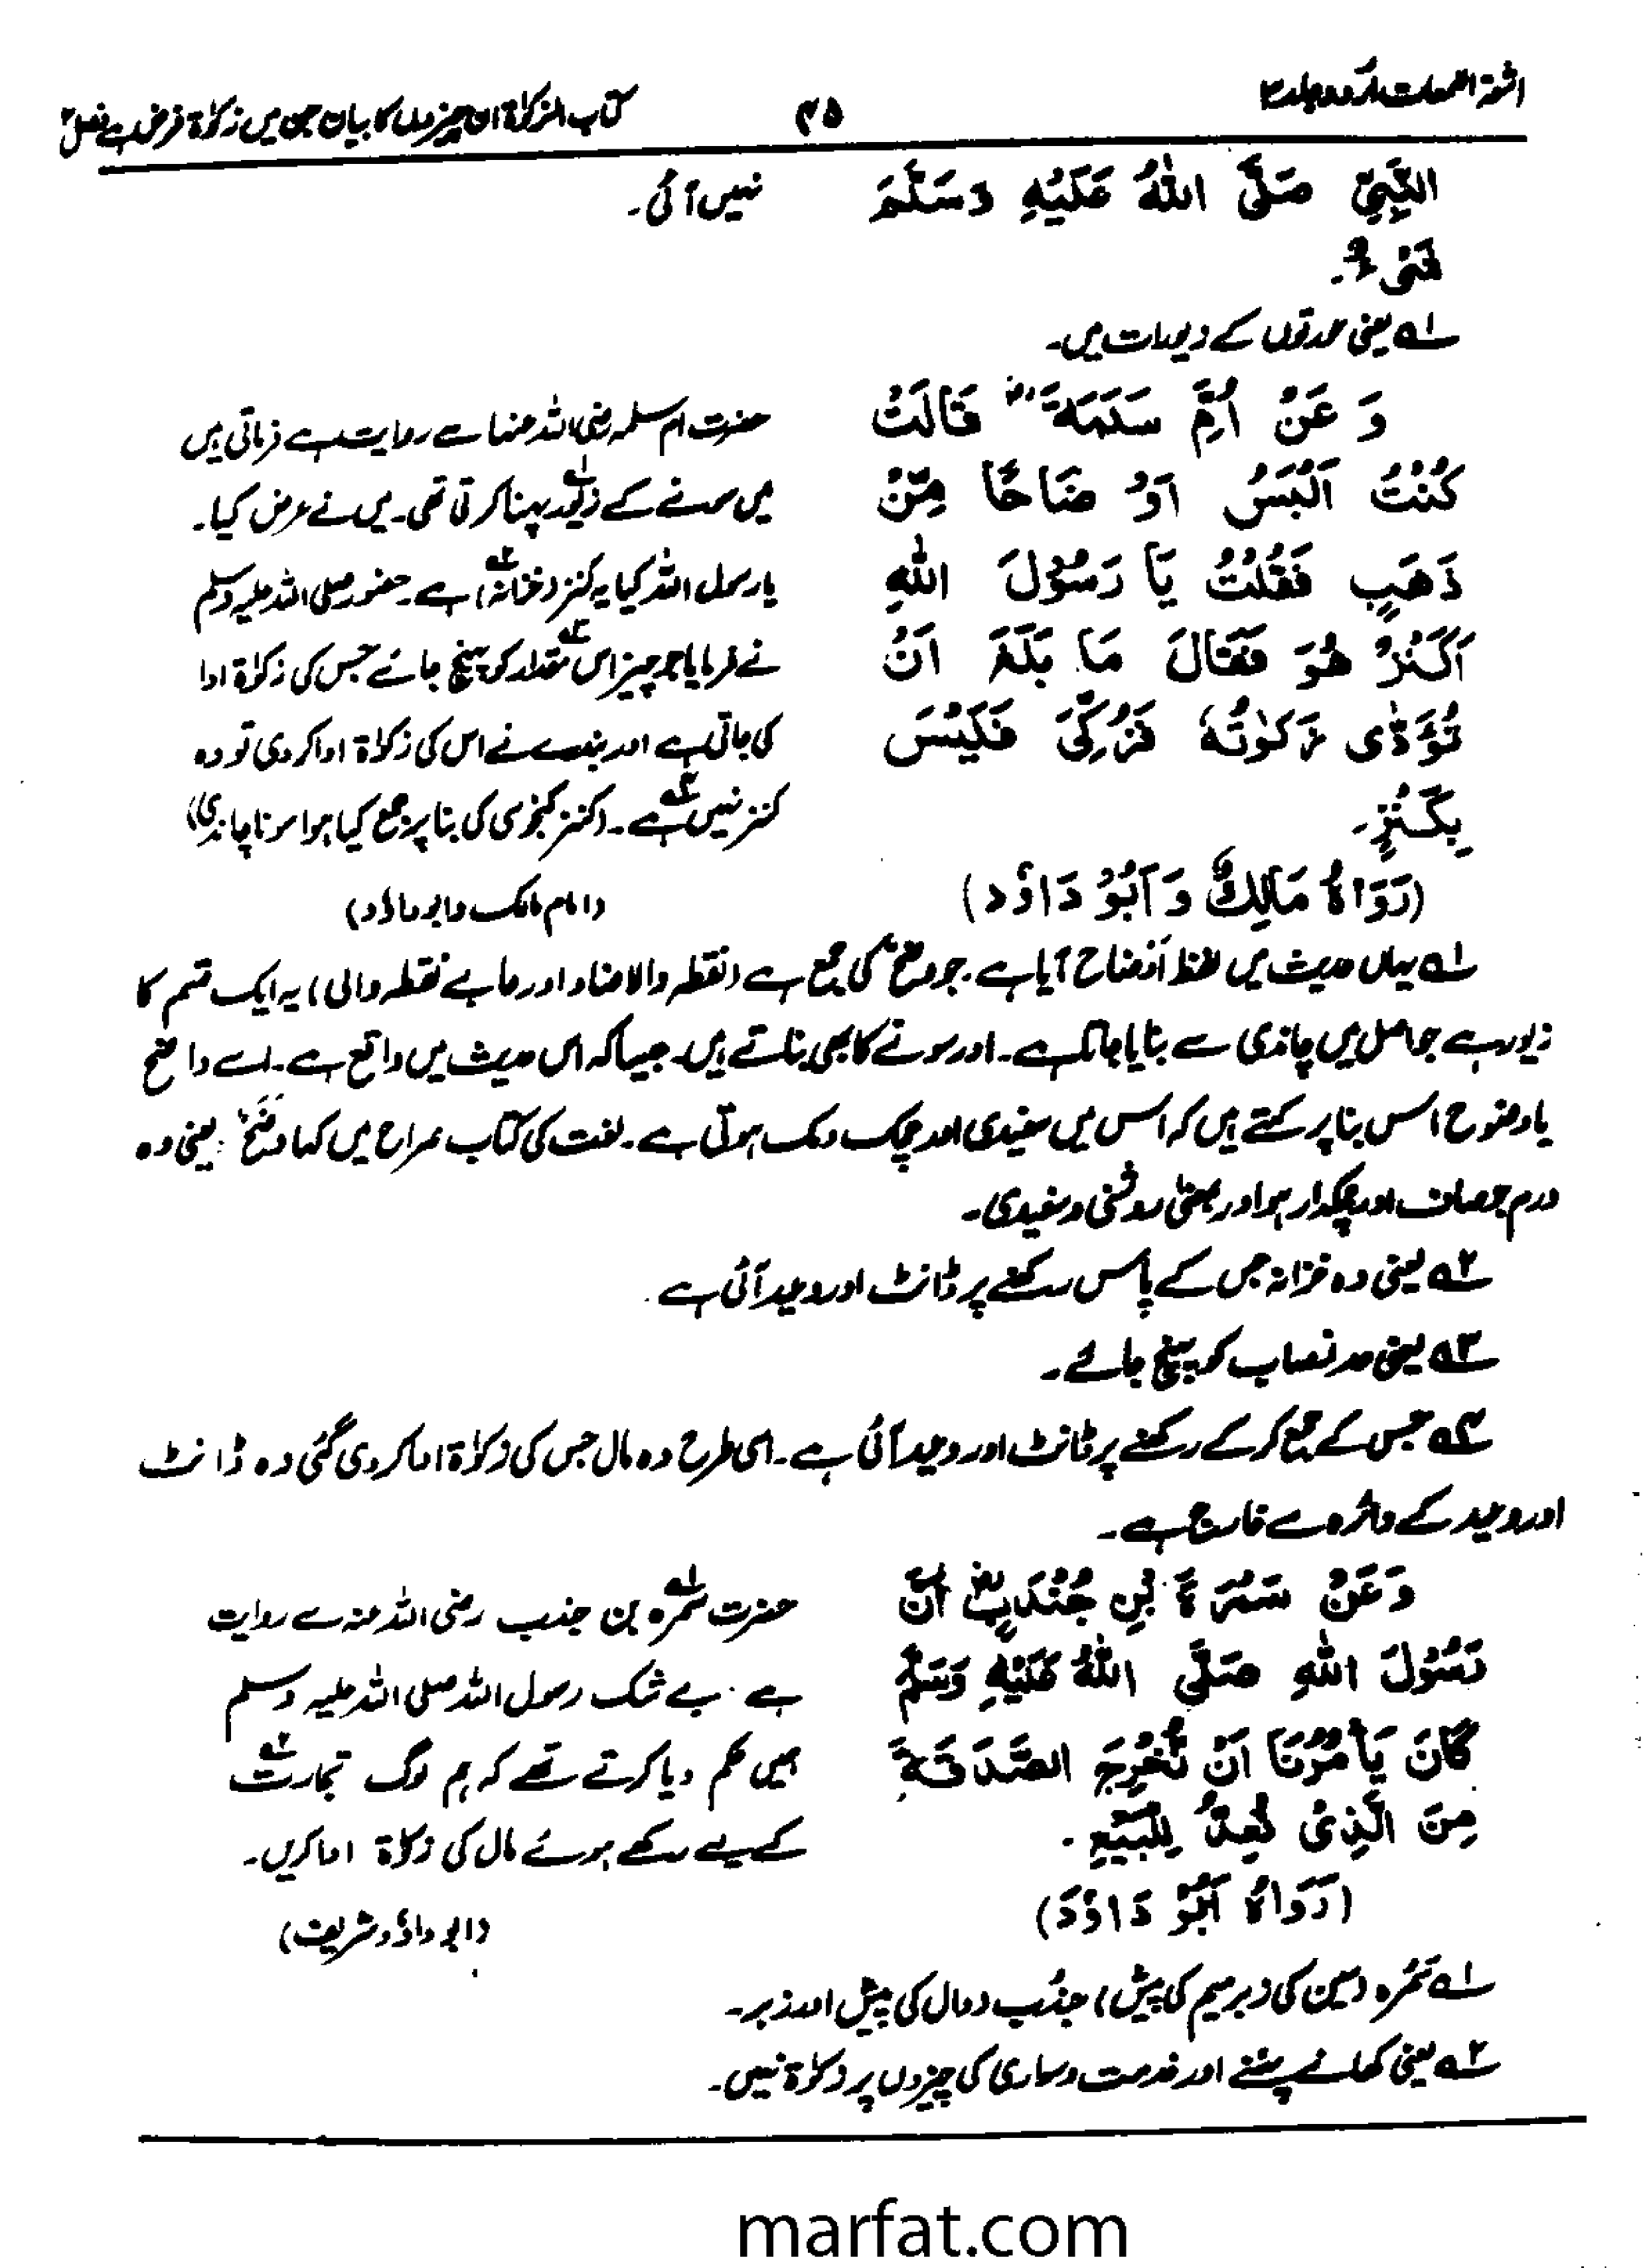 اشعۃ اللمعات اردو جلد ۳
۴۵
کتاب الزکوٰۃ ان چیزوں کا بیان جن میں زکوٰۃ فرض ہے فصل ۲
النَّبِيِّ صَلَّى اللهُ عَلَيْهِ وَسَلَّمَ
شَىْءٌ۔
نہیں آئی۔
۱؎ یعنی صدقوں کے دیہات میں۔
وَ عَنْ اُمِّ سَلَمَةَ رض قَالَتْ
كُنْتُ اَلْبَسُ اَوْضَاحًا مِّنْ
ذَهَبٍ فَقُلْتُ يَا رَسُوْلَ اللهِ
اَكَنْزٌ هُوَ فَقَالَ مَا بَلَغَ اَنْ
تُؤَدّٰى زَكٰوتُهٗ فَزُكِّىَ فَلَيْسَ
بِكَنْزٍ۔
(رَوَاهُ مَالِكٌ وَ اَبُوْ دَاوٗدَ)
حضرت ام سلمہ رضی اللہ عنہا سے روایت ہے فرماتی ہیں
میں سونے کے زیور۱؎ پہنا کرتی تھی۔ میں نے عرض کیا۔
یا رسول اللہ کیا یہ کنز (خزانہ)۲؎ ہے۔ حضور صلی اللہ علیہ وسلم
نے فرمایا جو چیز اس مقدار۳؎ کو پہنچ جائے جس کی زکوٰۃ ادا
کی جاتی ہے اور بندے نے اس کی زکوٰۃ ادا کر دی تو وہ
کنز نہیں۴؎ ہے۔ (کنز کنجوسی کی بنا پر جمع کیا ہوا سونا چاندی)
(امام مالک و ابو داؤد)
۱؎ یہاں حدیث میں لفظ اَوْضاح آیا ہے۔ جو وضح کی جمع ہے (نقطہ والا ضاد اور حا بے نقطہ والی) یہ ایک قسم کا
زیور ہے جو اصل میں چاندی سے بنایا جاتا ہے۔ اور سونے کا بھی بناتے ہیں۔ جیسا کہ اس حدیث میں واقع ہے۔ اسے واضح
یا وضوح اس بنا پر کہتے ہیں کہ اس میں سفیدی اور چمک دمک ہوتی ہے۔ لغت کی کتاب صراح میں کہا وَضَحٌ: یعنی وہ
درہم جو صاف اور چمکدار ہو اور بمعنی روشنی و سفیدی۔
۲؎ یعنی وہ خزانہ جس کے پاس رکھنے پر ڈانٹ اور وعید آئی ہے۔
۳؎ یعنی حد نصاب کو پہنچ جائے۔
۴؎ جس کے جمع کر کے رکھنے پر ڈانٹ اور وعید آئی ہے۔ اسی طرح وہ مال جس کی زکوٰۃ ادا کر دی گئی وہ ڈانٹ
اور وعید کے دائرہ سے خارج ہے۔
وَعَنْ سَمُرَةَ بْنِ جُنْدَبٍ رض اَنَّ
رَسُوْلَ اللهِ صَلَّى اللهُ عَلَيْهِ وَسَلَّمَ
كَانَ يَاْمُرُنَا اَنْ نُّخْرِجَ الصَّدَقَةَ
مِنَ الَّذِىْ نُعِدُّ لِلْبَيْعِ۔
(رَوَاهُ اَبُوْ دَاوٗدَ)
حضرت سمُرہ۱؎ بن جندب رضی اللہ عنہ سے روایت
ہے۔ بے شک رسول اللہ صلی اللہ علیہ وسلم
ہمیں حکم دیا کرتے تھے کہ ہم لوگ تجارت۲؎
کے لیے رکھے ہوئے مال کی زکوٰۃ ادا کریں۔
(ابو داؤد شریف)
۱؎ سَمُرہ (سین کی زبر میم کی پیش) جندُب (دال کی پیش اور زبر۔
۲؎ یعنی کھانے پینے اور خدمت و سواری کی چیزوں پر زکوٰۃ نہیں۔
marfat.com